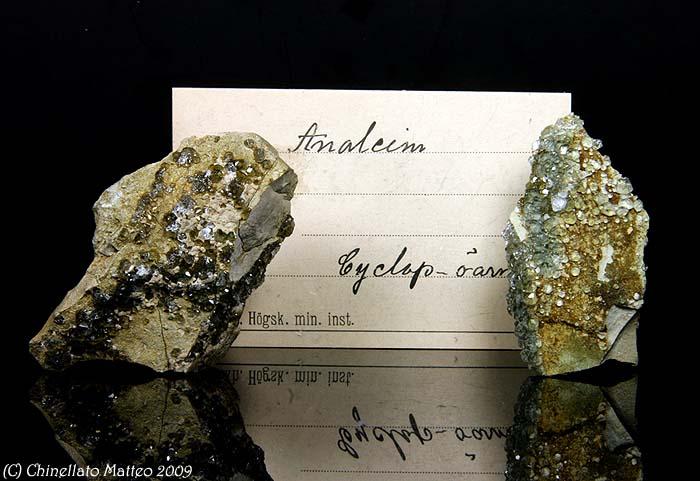 Analcim
Cyclop-öarn
Högsk. min. inst.
(C) Chinellato Matteo 2009